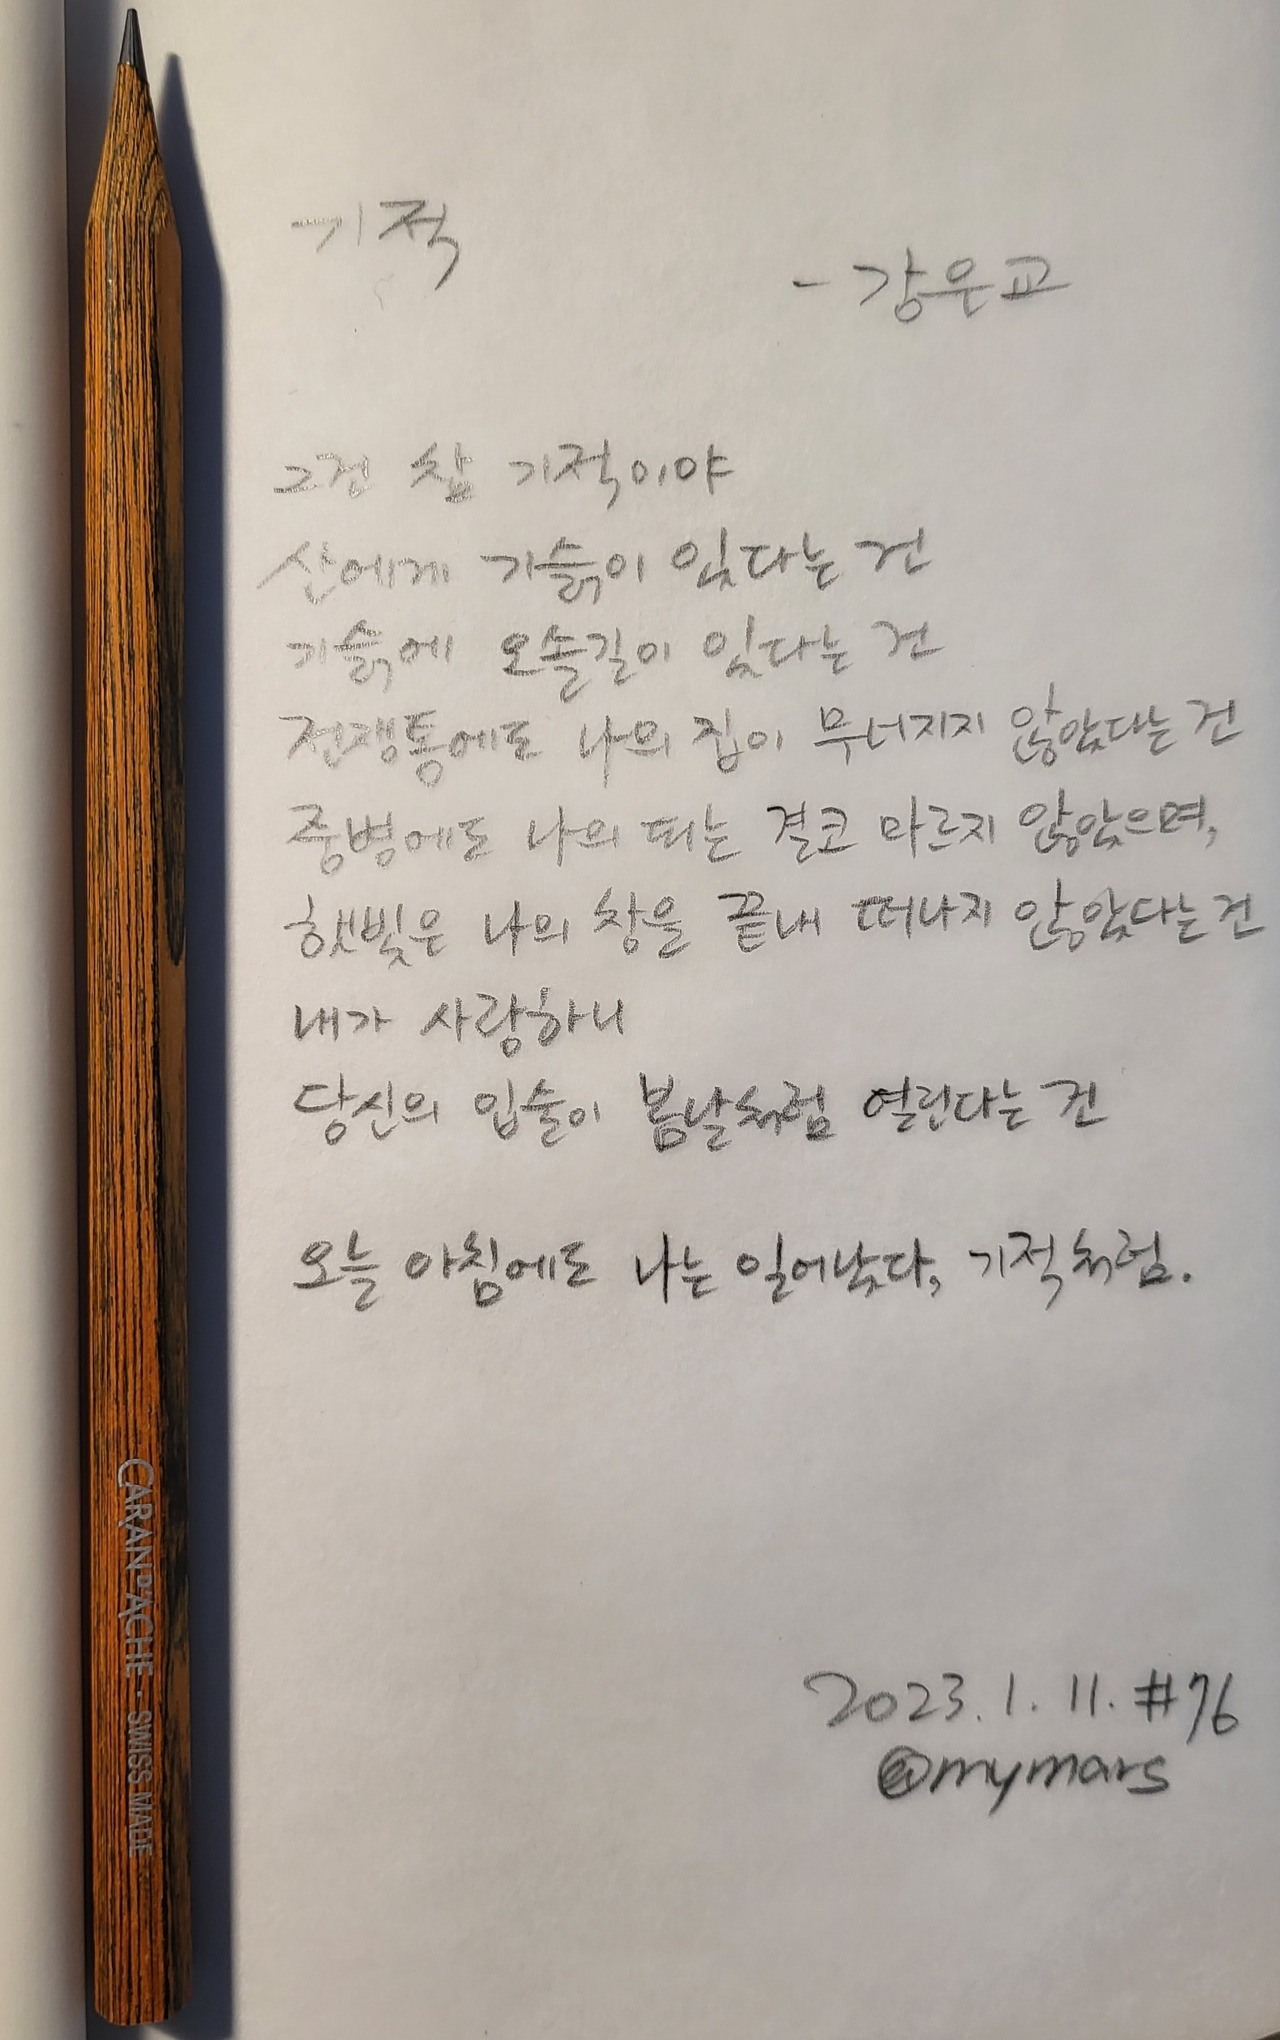 기적
- 강은교
그건 참 기적이야
산에게 기슭이 있다는 건
기슭에 오솔길이 있다는 건
전쟁통에도 나의 집이 무너지지 않았다는 건
중병에도 나의 피는 결코 마르지 않았으며,
햇빛은 나의 창을 끝내 떠나지 않았다는 건
내가 사랑하니
당신의 입술이 봄날처럼 열린다는 건
오늘 아침에도 나는 일어났다, 기적처럼.
2023. 1. 11. #76
@mymars
CARAN D'ACHE · SWISS MADE